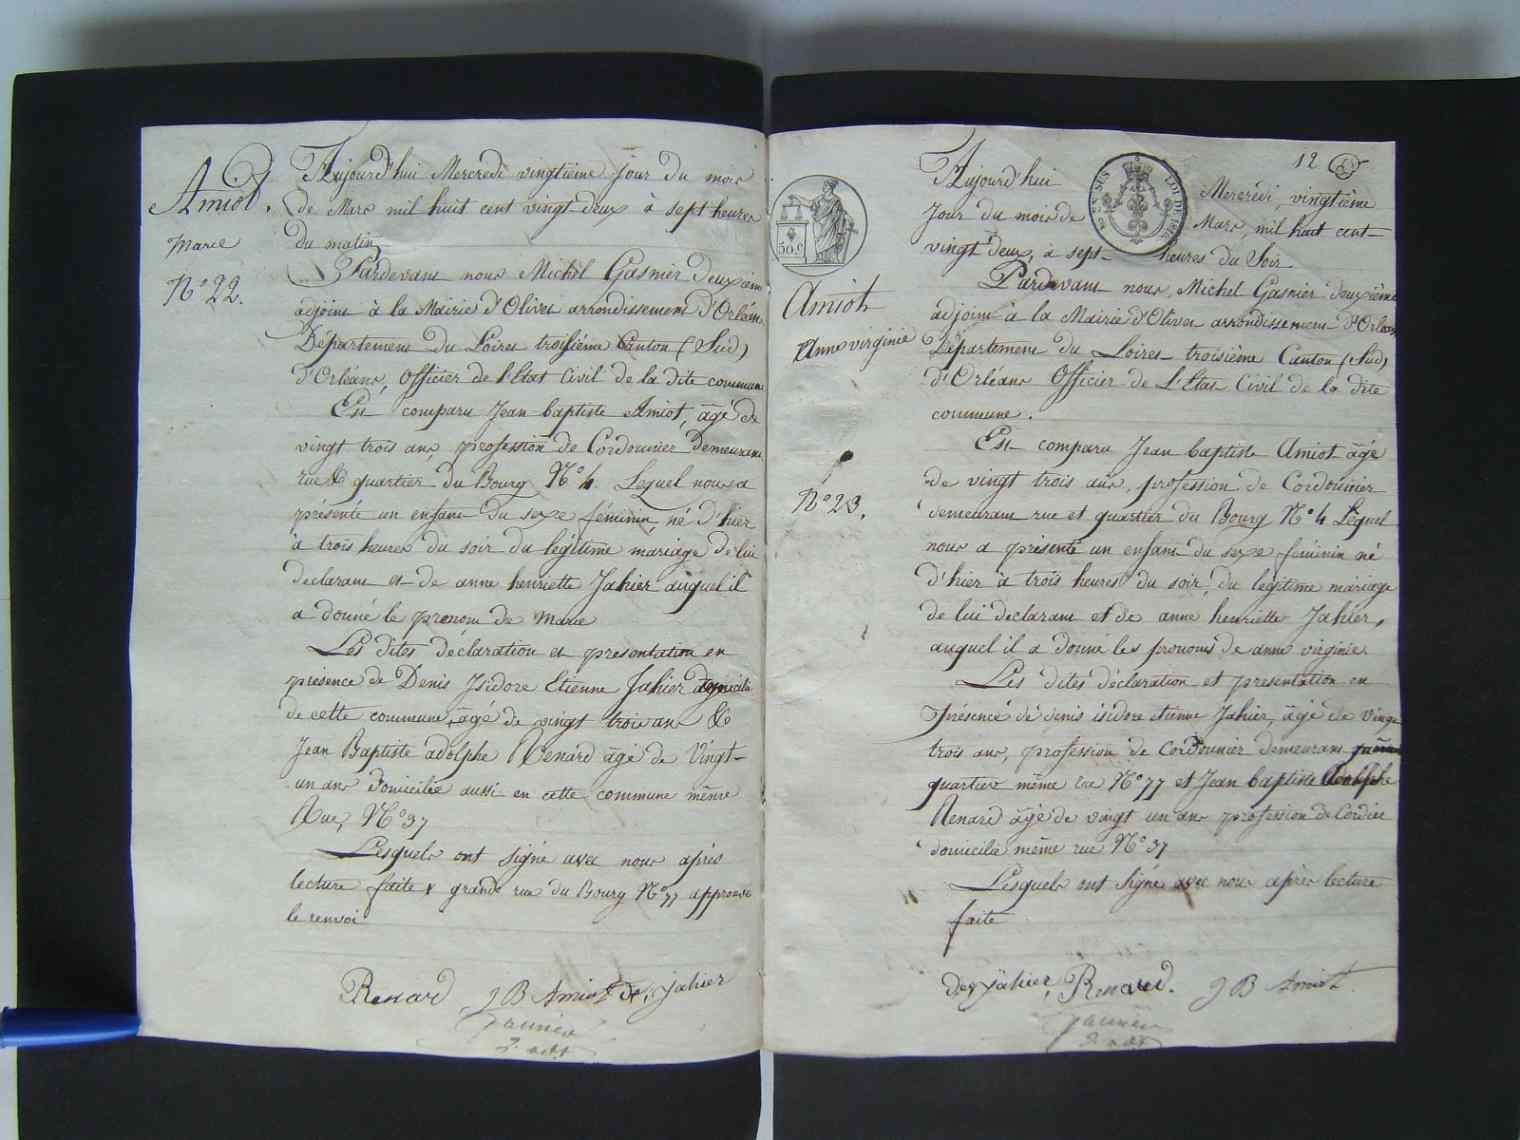 Amiot.
Marie
N° 22.
Aujourd'hui Mercredi vingtième jour du mois
de Mars mil huit cent vingt-deux à sept heures
du matin
Pardevant nous Michel Gasnier deuxième
adjoint à la Mairie d'Olivet arrondissement d'Orléans
Département du Loiret troisième Canton (Sud)
d'Orléans, Officier de l'Etat Civil de la dite commune
Est comparu Jean baptiste Amiot, âgé de
vingt trois ans, profession de Cordonnier demeurant
rue & quartier du Bourg N° 4. Lequel nous a
présenté un enfant du sexe féminin, né d'hier
à trois heures du soir du légitime mariage de lui
declarant et de anne henriette Jahier auquel il
a donné le prenom de Marie
Les dites déclaration et presentation en
présence de Denis Isidore Etienne Jahier domicilié
de cette commune, âgé de vingt trois ans &
Jean Baptiste adolphe Renard âgé de Vingt-
un ans domicilié aussi en cette commune même
Rue, N° 37
Lesquels ont signé avec nous après
lecture faite & grande rue du Bourg N° 77 approuvé
le renvoi
Renard J B Amiot Jahier
2. adjt
12
50.c
LOI DE 1816
Amiot
Anne virginie
N° 23.
Aujourd'hui Mercredi, vingtième
Jour du mois de Mars, mil huit cent
vingt deux, à sept heures du Soir
Pardevant nous, Michel Gasnier deuxième
adjoint à la Mairie d'Olivet arrondissement d'Orléans
Département du Loiret troisième Canton (Sud)
d'Orléans Officier de L'Etat Civil de la dite
commune.
Est comparu Jean baptiste Amiot âgé
de vingt trois ans, profession de Cordonnier
demeurant rue et quartier du Bourg N° 4 Lequel
nous a présenté un enfant du sexe feminin né
d'hier à trois heures du soir, du légitime mariage
de lui declarant et de anne henriette Jahier,
auquel il a donné les prenoms de anne virginie
Les dites déclaration et presentation en
Présence de denis isidore etienne Jahier, âgé de vingt
trois ans, profession de Cordonnier demeurant
quartier même rue N° 77 et Jean baptiste Adolphe
Renard âgé de vingt un ans profession de Cordier
domicilié même rue N° 37
Lesquels ont signé avec nous après lecture
faite
Jahier, Renard. J B Amiot
2. adjt